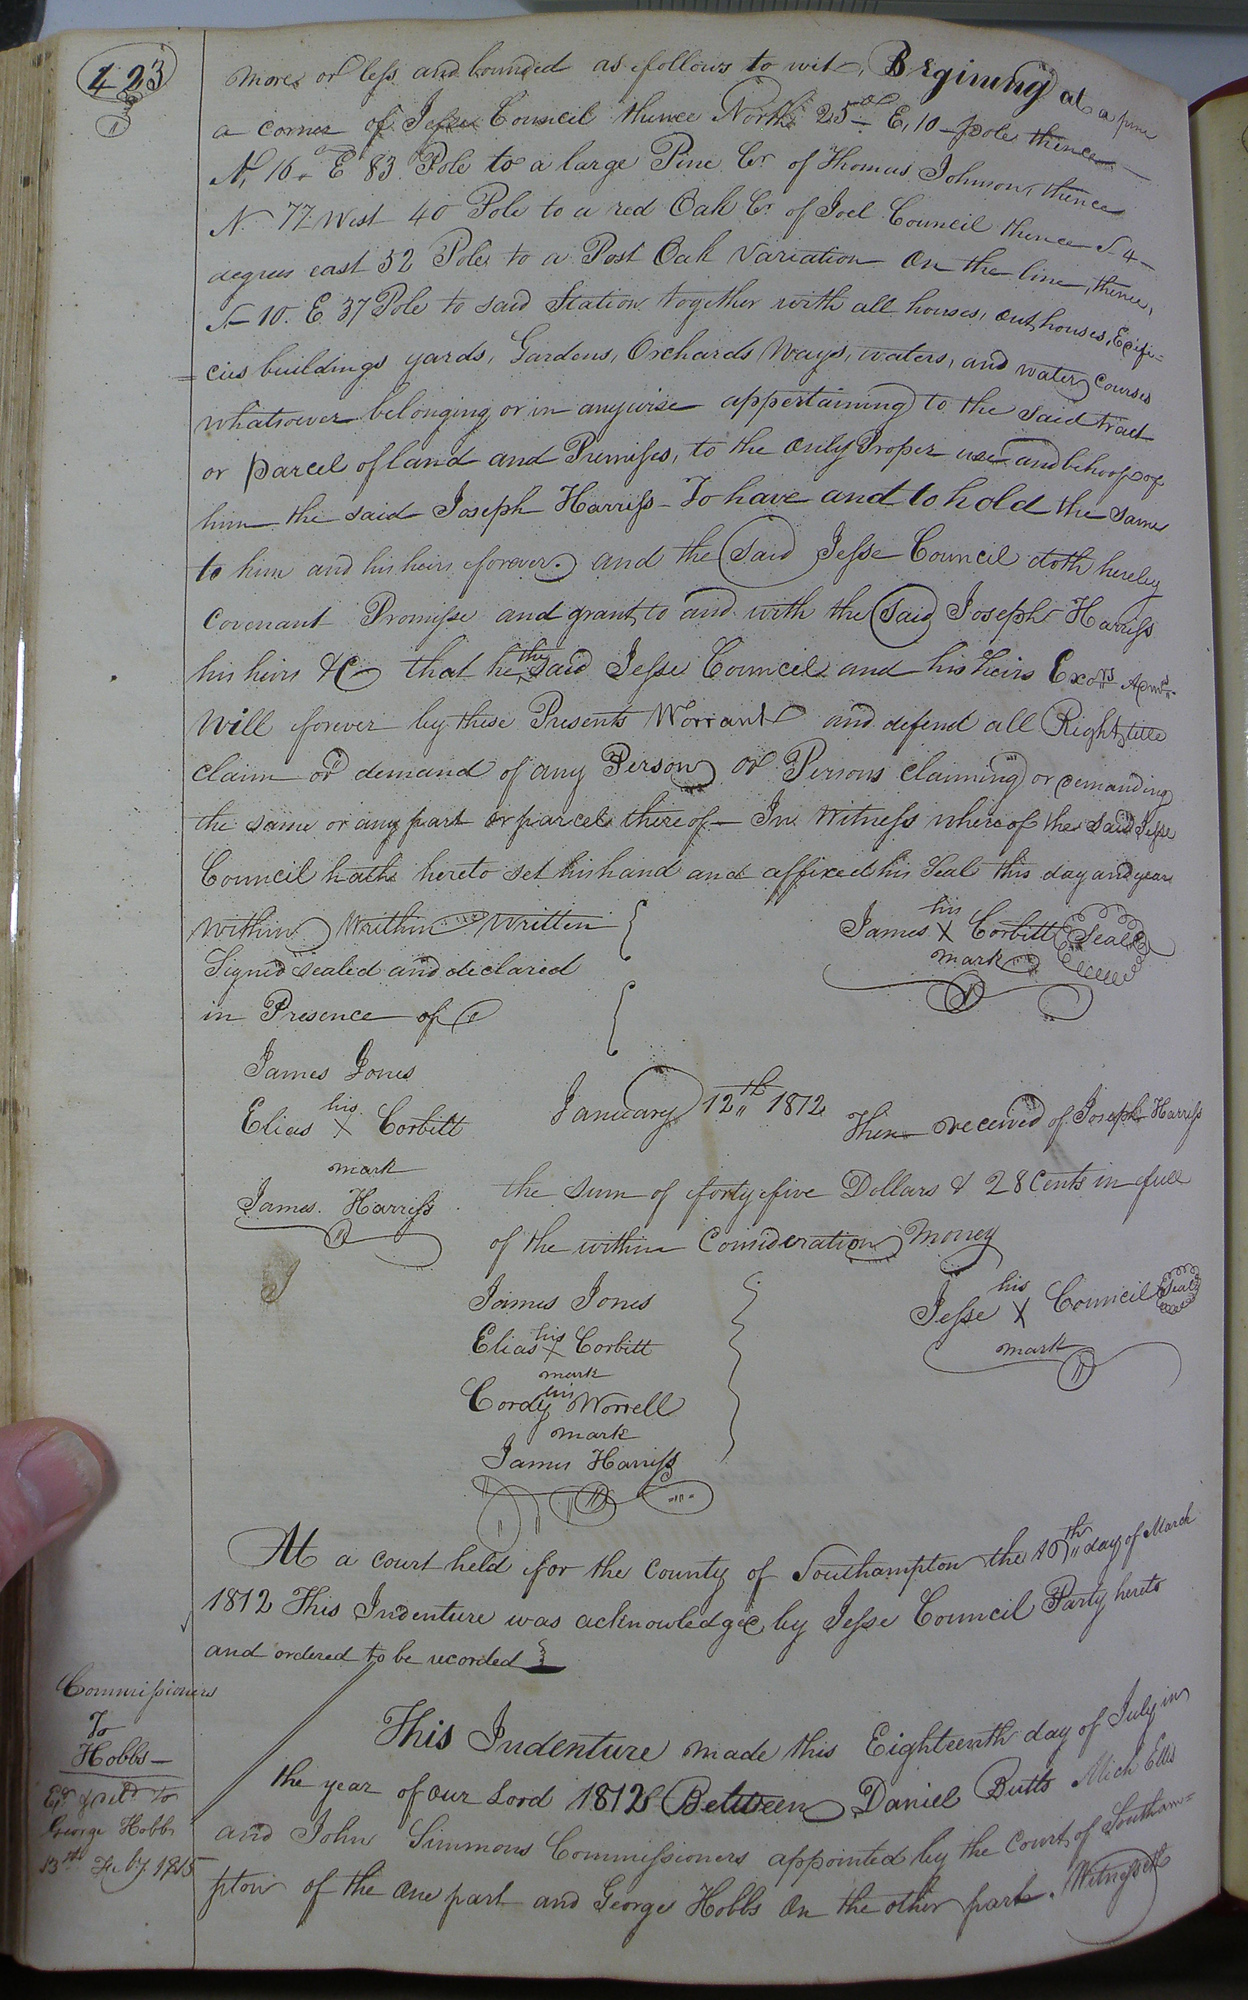 423
more or less and bounded as follows to wit, Begining at a pine
a corner of Jesse Council thence North 25d E, 10 pole thence
N, 16d E 83 Pole to a large Pine Cr of Thomas Johnson, thence
N 77 West 40 Pole to a red Oak Cr of Joel Council thence S 4
degrees east 52 Pole to a Post Oak Variation On the line, thence,
S 10. E 37 Pole to said Station together with all houses, out houses, Edifi=
=cies buildings yards, Gardens, Orchards Ways, waters, and water courses
whatsower belonging or in anywise appertaining to the said tract
or parcel of land and Premises, to the only Proper use and behoof of
him the said Joseph Harriss - To have and to hold the same
to him and his heirs forever. and the said Jesse Council doth hereby
Covenant Promise and grant to and with the said Joseph Harriss
his heirs &C that he the said Jesse Council and his heirs Exors Admrs
Will forever by these Presents Worrant and defend all Right title
claim or demand of any Person or Persons claiming or demanding
the same or any part or parcel there of - In Witness where of the said Jesse
Council hath hereto set his hand and affixed his Seal this day and year
within Writhin written
Signed sealed and declared
in Presence of
his
James X Corbitt Seal
mark
James Jones
his
Elias X Corbitt
mark
James Harriss
January 12th 1812 Then received of Joseph Harriss
the sum of forty five Dollars & 28 Cents in full
of the within Consideration Money
James Jones
his
Elias X Corbitt
mark
his
Cordy Worrell
mark
James Harriss
his
Jesse X Council Seal
mark
At a court held for the County of Southampton the 16th day of March
1812 This Indenture was acknowledged by Jesse Council Party hereto
and ordered to be recorded
Commissioners
To
Hobbs
George Hobbs
13th Feby. 1815
This Indenture made this Eighteenth day of July in
the year of our Lord 1812 Between Daniel Butts Mich Ellis
and John Simmons Commissioners appointed by the Court of Southam=
pton of the One part and George Hobbs On the other part. Witnesseth